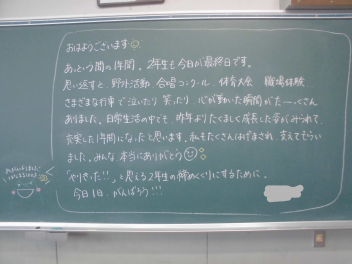 おはようございます
あっという間の1年間。2年生も今日が最終日です。
思い返すと、野外活動、合唱コンクール、体育大会、職場体験
さまざまな行事で泣いたり笑ったり、心が動いた瞬間がたーくさん
ありました。日常生活の中でも、昨年よりたくましく成長した姿がみられて、
充実した1年間になったと思います。私もたくさんはげまされ、支えてもらい
ました。みんな本当にありがとう
「やりきった!!」と思える2年生の締めくくりにするために、
今日1日、がんばろう!!!